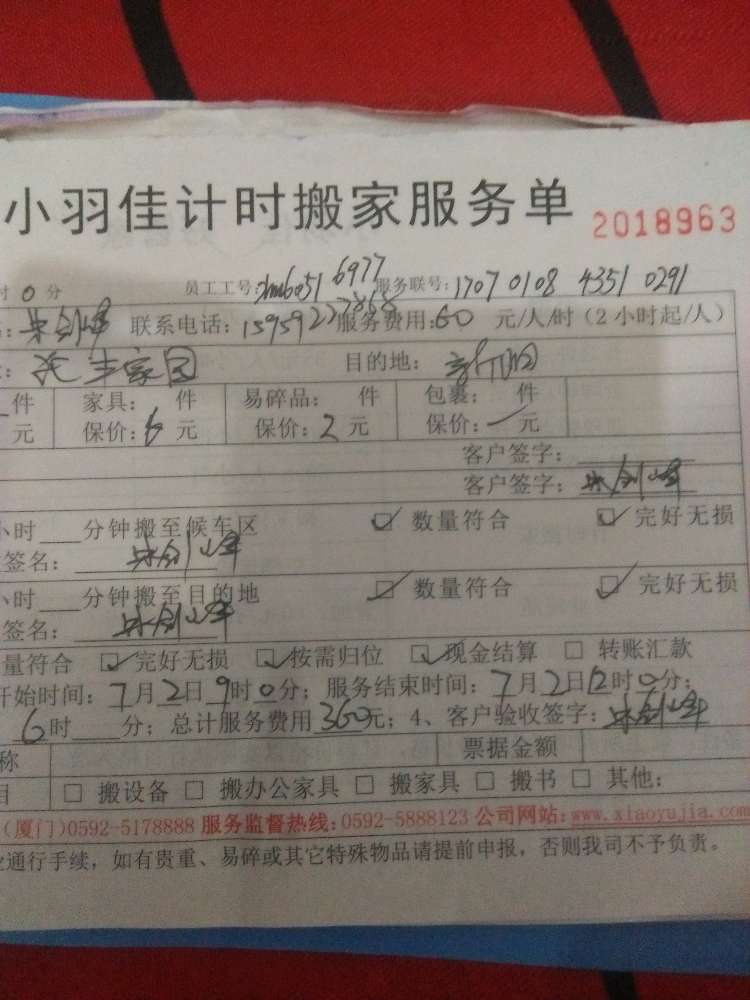 小羽佳计时搬家服务单 2018963
时 0 分 员工工号: 6977 服务联号: 1707 0108 4351 0291
联系电话: 服务费用:60 元/人/时（2小时起/人）
家园 目的地: 新阳
件 家具: 件 易碎品: 件 包裹: 件
元 保价:6 元 保价:2 元 保价: 元
客户签字:
客户签字:
小时 分钟搬至候车区 ☑ 数量符合 ☑ 完好无损
签名:
小时 分钟搬至目的地 ☑ 数量符合 ☑ 完好无损
签名:
量符合 ☑ 完好无损 ☑ 按需归位 ☑ 现金结算 □ 转账汇款
开始时间: 7月2日9时0分; 服务结束时间: 7月2日12时0分;
6时 分; 总计服务费用360元; 4、客户验收签字:
称 票据金额
目 □ 搬设备 □ 搬办公家具 □ 搬家具 □ 搬书 □ 其他:
(厦门)0592-5178888 服务监督热线:0592-5888123 公司网站:www.xiaoyujia.com
通行手续，如有贵重、易碎或其它特殊物品请提前申报，否则我司不予负责。